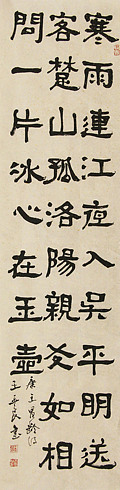 寒雨連江夜入吳平明送
客楚山孤洛陽親友如相
問一片冰心在玉壺
唐王昌齡詩